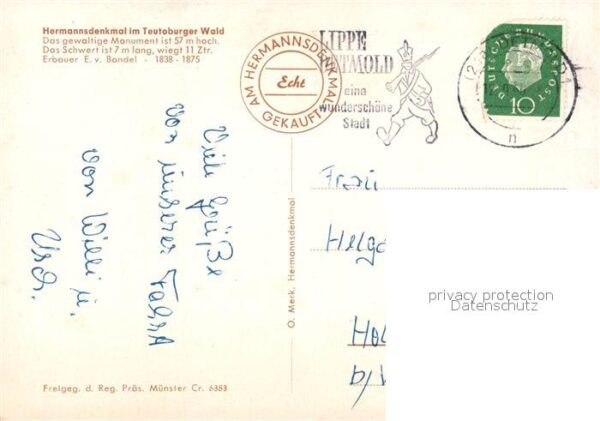 Hermannsdenkmal im Teutoburger Wald
Das gewaltige Monument ist 57 m hoch.
Das Schwert ist 7 m lang, wiegt 11 Ztr.
Erbauer E. v. Bandel - 1838 - 1875
AM HERMANNSDENKMAL
Echt
GEKAUFT
LIPPE
DETMOLD
eine
wunderschöne
Stadt
DEUTSCHE BUNDESPOST
10
n
Viele Grüße
von unserer Fahrt
von Willi u.
Frau
Helga
privacy protection
Datenschutz
b/
O. Merk. Hermannsdenkmal
Freigeg. d. Reg. Präs. Münster Cr. 6383